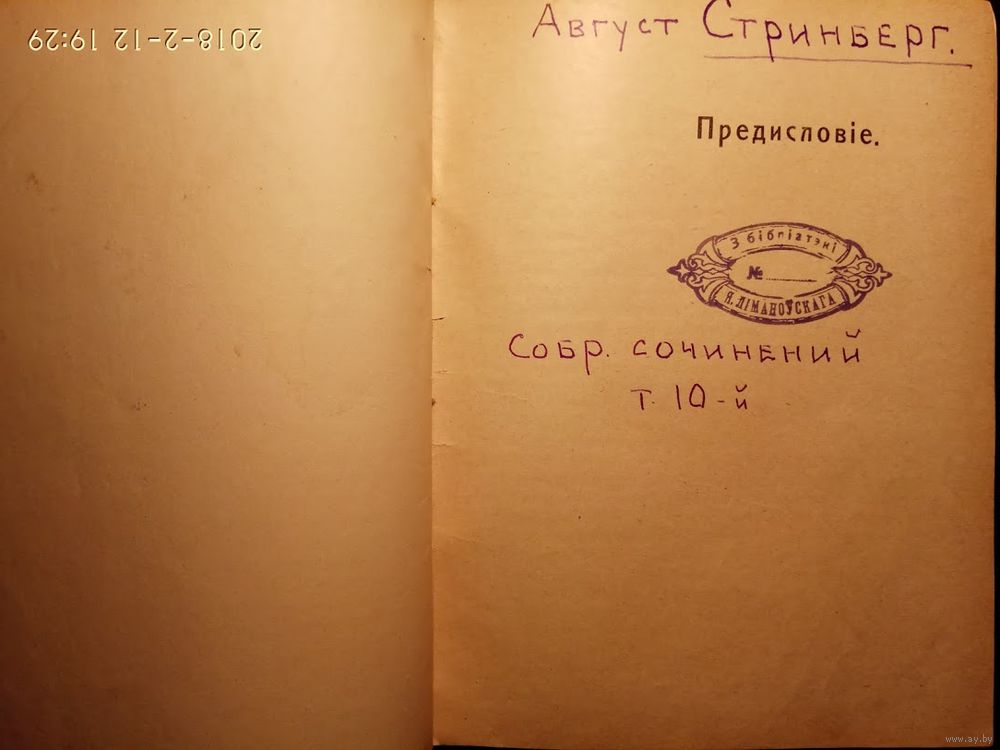 2018-2-12 19:29
Август Стринберг.
Предисловіе.
З бібліятэкі
№
Я. ЛІМАНОЎСКАГА
Собр. сочинений
т. 10-й
www.ay.by